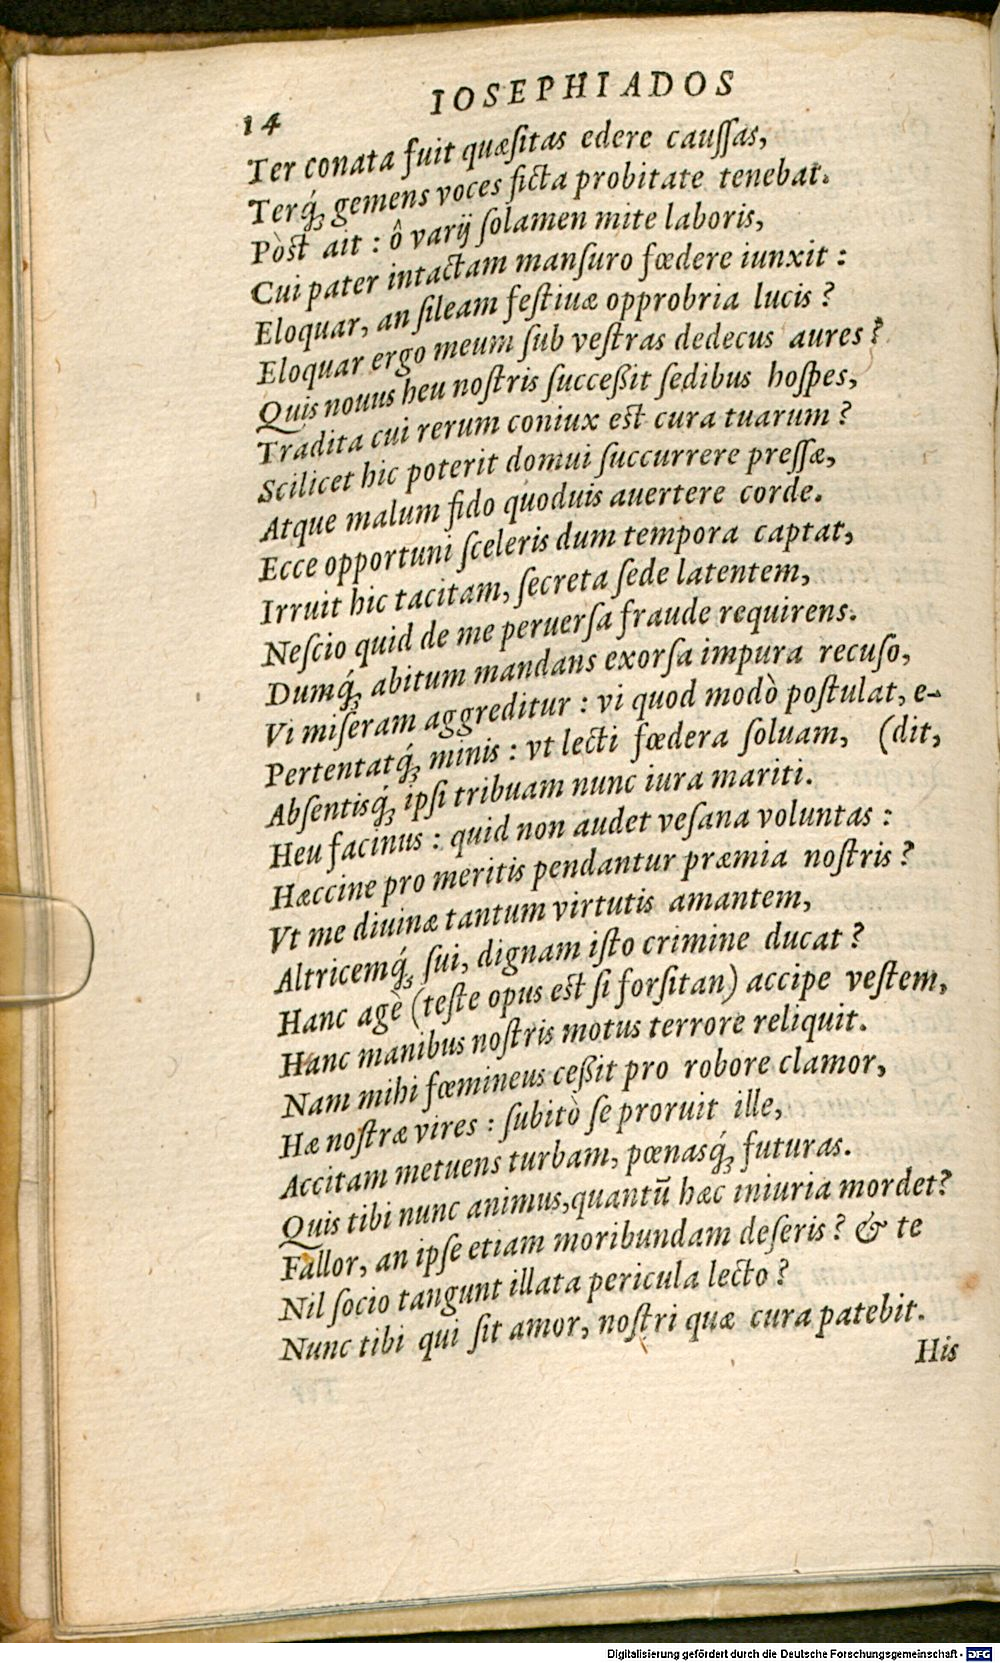 14 IOSEPHIADOS
Ter conata fuit quæſitas edere cauſſas,
Terq́; gemens voces ficta probitate tenebat.
Pòst ait : ô varij ſolamen mite laboris,
Cui pater intactam manſuro fœdere iunxit :
Eloquar, an ſileam feſtiuæ opprobria lucis ?
Eloquar ergo meum ſub veſtras dedecus aures ?
Quis nouus heu noſtris ſucceßit ſedibus hoſpes,
Tradita cui rerum coniux est cura tuarum ?
Scilicet hic poterit domui ſuccurrere preſſæ,
Atque malum fido quoduis auertere corde.
Ecce opportuni ſceleris dum tempora captat,
Irruit hic tacitam, ſecreta ſede latentem,
Neſcio quid de me peruerſa fraude requirens.
Dumq́; abitum mandans exorſa impura recuſo,
Vi miſeram aggreditur : vi quod modò poſtulat, e-
Pertentatq́; minis : vt lecti fœdera ſoluam, (dit,
Abſentisq́; ipſi tribuam nunc iura mariti.
Heu facinus : quid non audet veſana voluntas :
Hæccine pro meritis pendantur præmia noſtris ?
Vt me diuinæ tantum virtutis amantem,
Altricemq́; ſui, dignam iſto crimine ducat ?
Hanc agè (teſte opus est ſi forſitan) accipe veſtem,
Hanc manibus noſtris motus terrore reliquit.
Nam mihi fœmineus ceßit pro robore clamor,
Hæ noſtræ vires : ſubitò ſe proruit ille,
Accitam metuens turbam, pœnasq́; futuras.
Quis tibi nunc animus, quantū hæc iniuria mordet?
Fallor, an ipſe etiam moribundam deſeris ? & te
Nil ſocio tangunt illata pericula lecto ?
Nunc tibi qui ſit amor, noſtri quæ cura patebit.
His
Digitalisierung gefördert durch die Deutsche Forschungsgemeinschaft - DFG